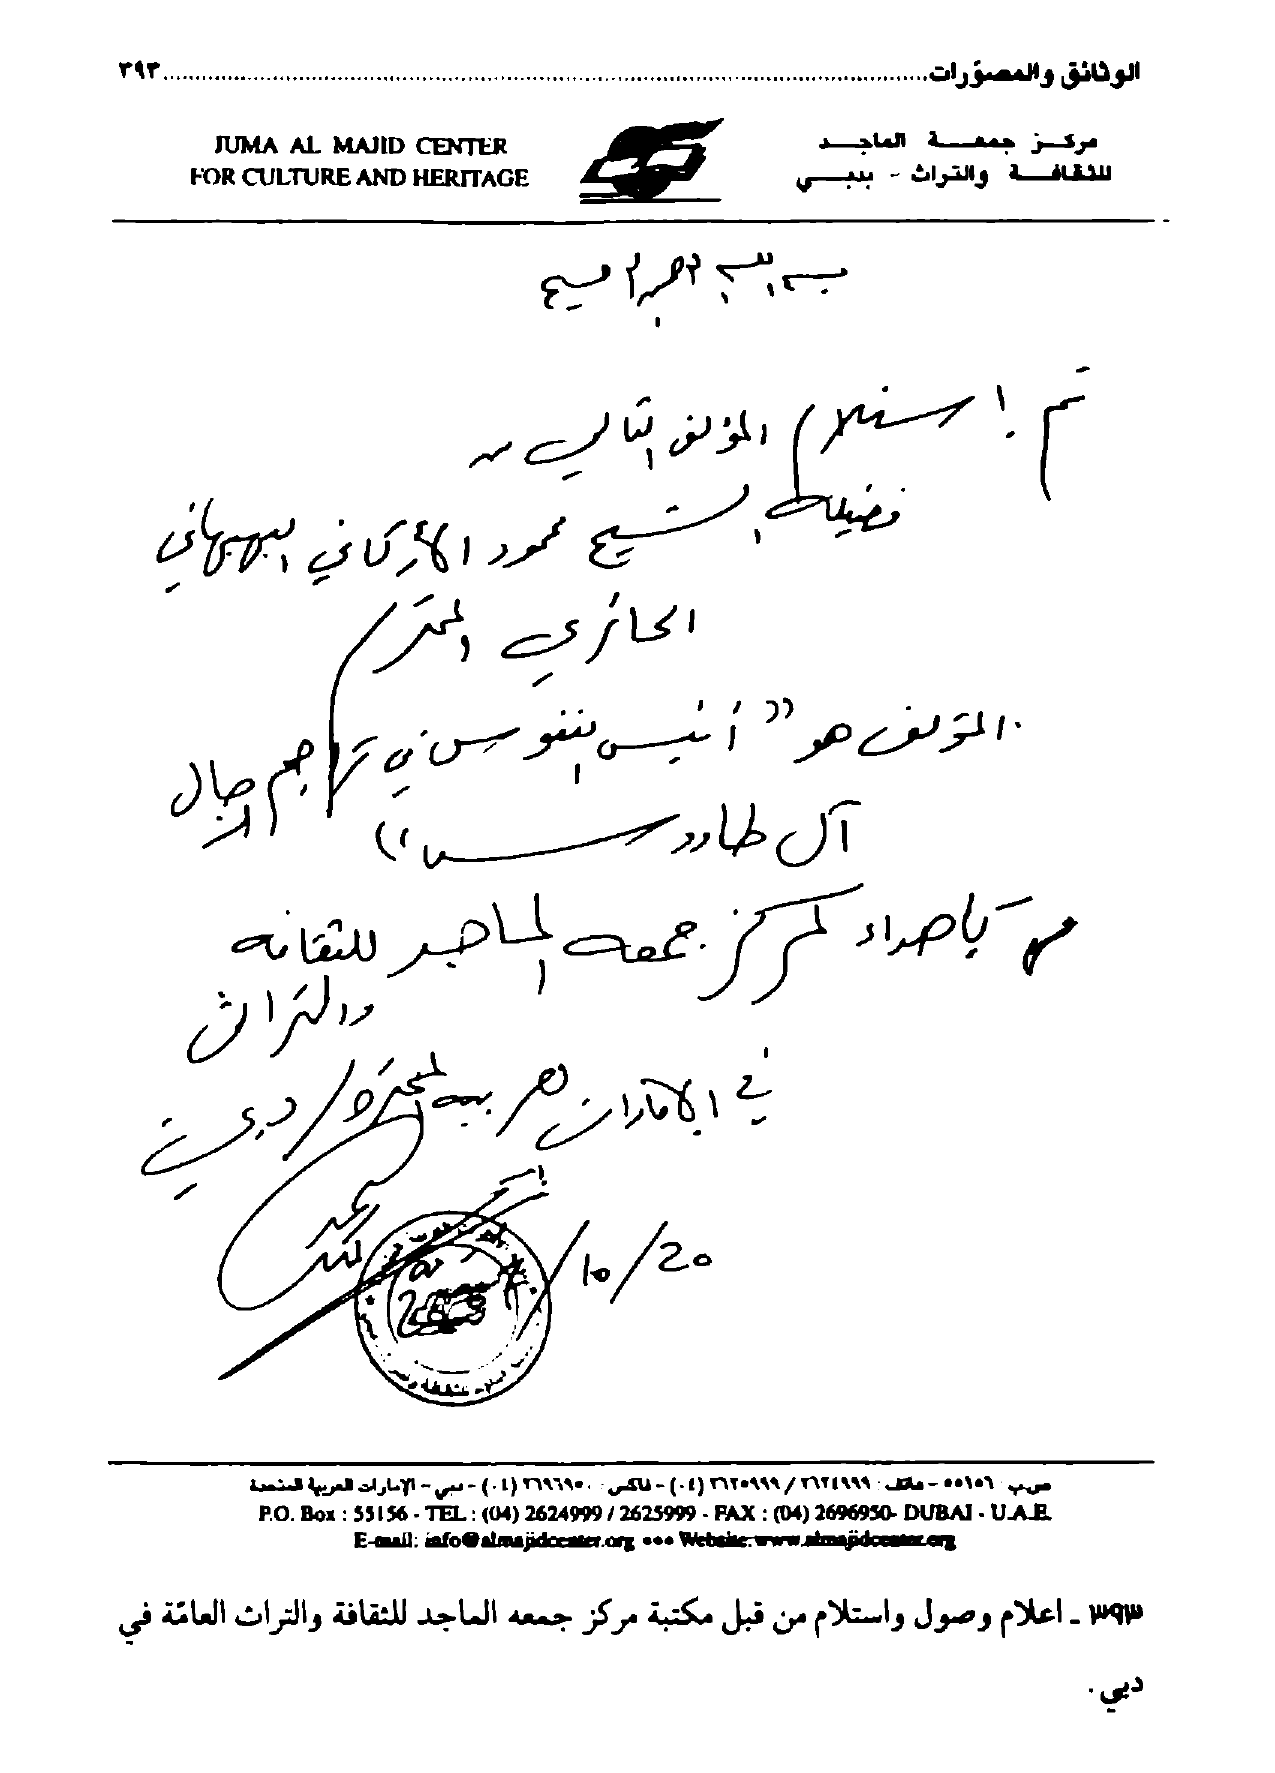 الوثائق والمصوّرات ................ ٣٩٣
JUMA AL MAJID CENTER
FOR CULTURE AND HERITAGE
مركز جمعة الماجد
للثقافة والتراث - بدبي
بسم الله الرحمن الرحيم
تم استلام المؤلف التالي من
فضيلة الشيخ محمود الأركاني البهبهاني
الحائري المحترم
المؤلف هو "أنيس النفوس في تراجم رجال
آل طاووس"
بإهداء لمركز جمعه الماجد للثقافه
والتراث
في الامارات العربيه / دبي
20/10/
ص.ب: ٥٥١٥٦ - هاتف: ٢٦٢٤٩٩٩ / ٢٦٢٥٩٩٩ (٠٤) - فاكس: ٢٦٩٦٩٥٠ (٠٤) - دبي - الإمارات العربية المتحدة
P.O. Box : 55156 - TEL : (04) 2624999 / 2625999 - FAX : (04) 2696950- DUBAI - U.A.E.
E-mail: info@almajidcenter.org ••• Website: www.almajidcenter.org
٣٩٣ ـ اعلام وصول واستلام من قبل مكتبة مركز جمعه الماجد للثقافة والتراث العامّة في
دبي .